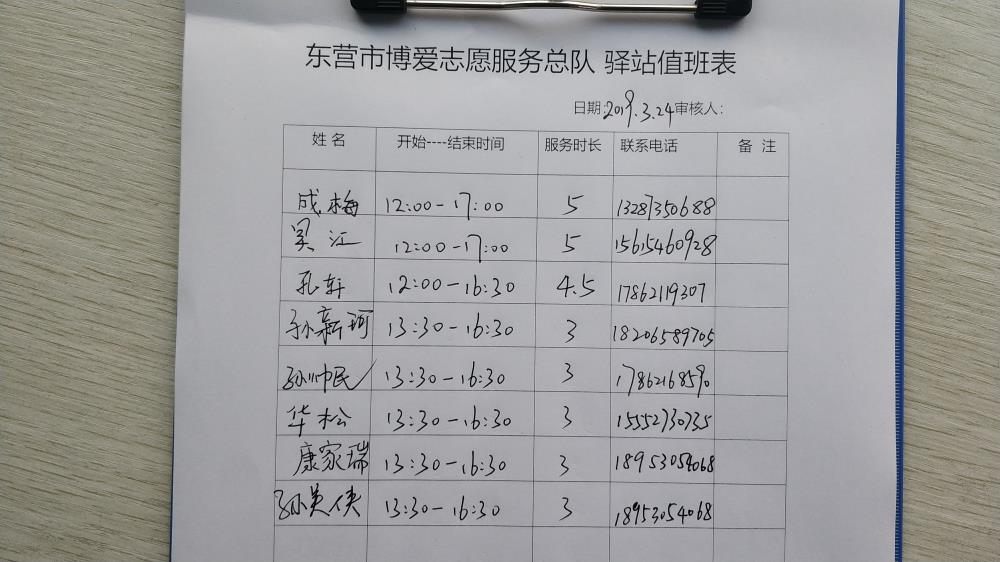 东营市博爱志愿服务总队 驿站值班表
日期:2019.3.24 审核人:
姓名 开始----结束时间 服务时长 联系电话 备 注
成梅 12:00-17:00 5 13287350688
吴江 12:00-17:00 5 15615460928
孔轩 12:00-16:30 4.5 17862119307
孙新珂 13:30-16:30 3 18206589705
孙帅民 13:30-16:30 3 17862168590
华松 13:30-16:30 3 15552730735
康家瑞 13:30-16:30 3 18953054068
孙吴侠 13:30-16:30 3 18953054068